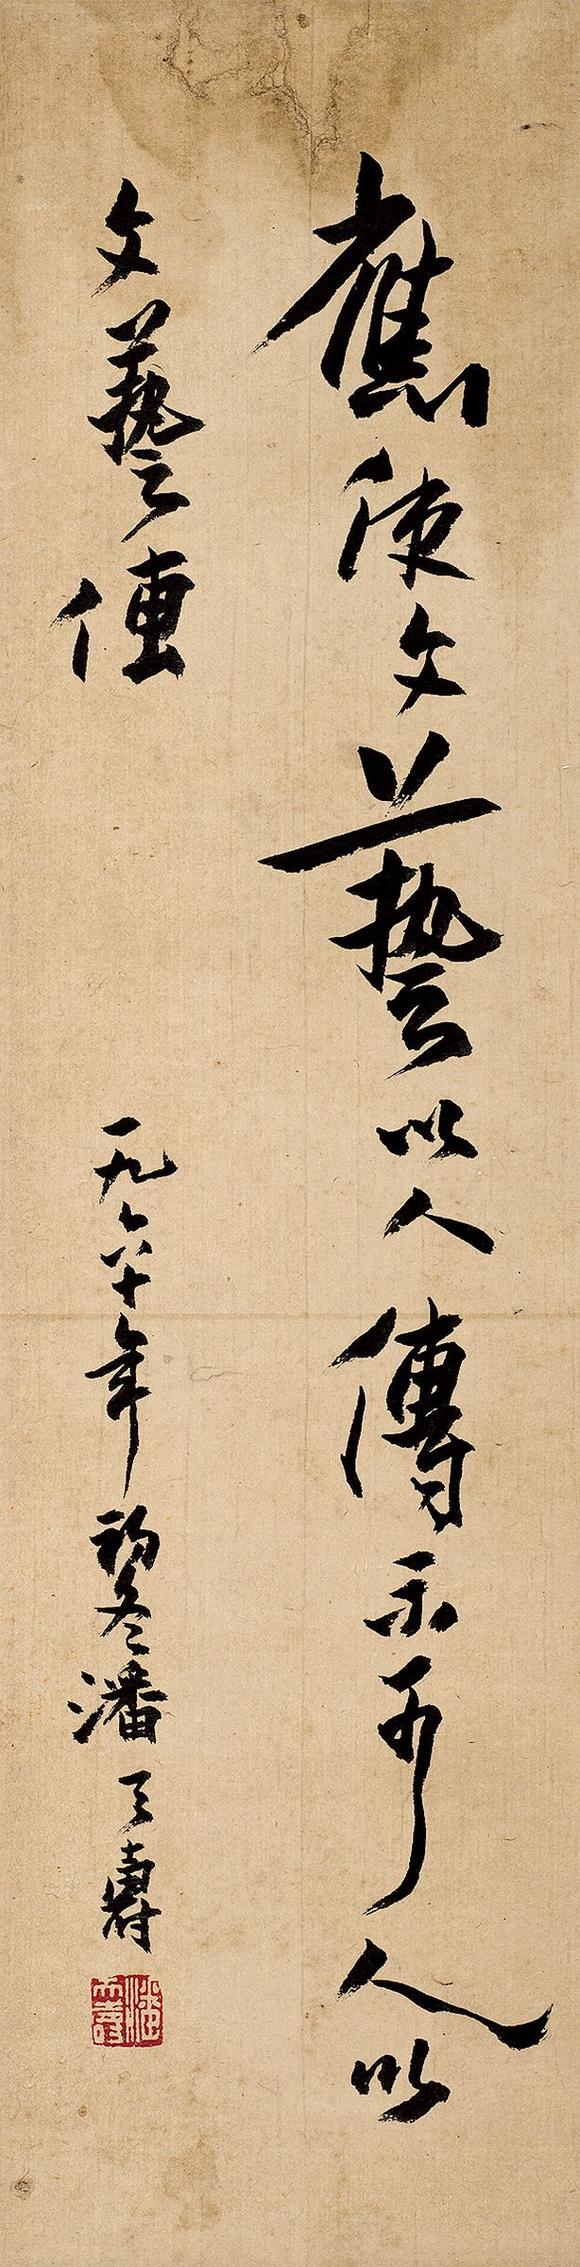 應使文藝以人傳不可人以
文藝傳
一九六十年初冬潘天壽
潘天壽